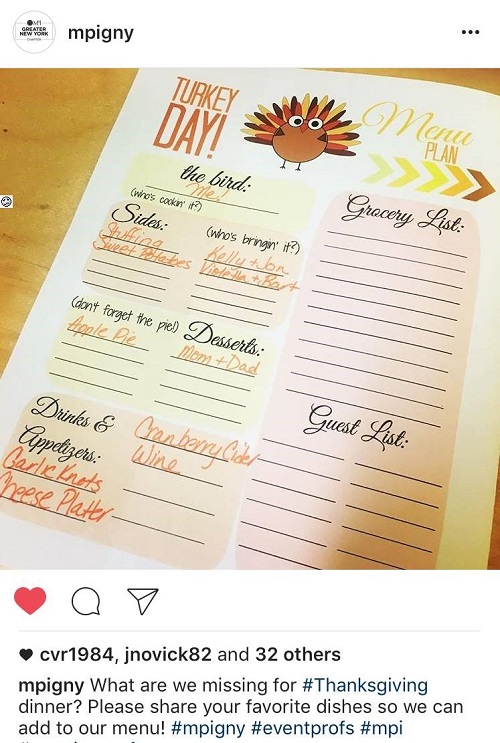 MPI
GREATER
NEW YORK
CHAPTER
mpigny
TURKEY
DAY!
Menu
PLAN
the bird:
(who's cookin' it?)
Me!
Sides:
(who's bringin' it?)
Stuffing
Kelly + Jon
Sweet Potatoes
(don't forget the pie!) Desserts:
Apple Pie
Mom + Dad
Drinks &
Appetizers:
Cranberry Cider
Wine
Garlic Knots
Cheese Platter
Grocery List:
Guest List:
cvr1984, jnovick82 and 32 others
mpigny What are we missing for #Thanksgiving
dinner? Please share your favorite dishes so we can
add to our menu! #mpigny #eventprofs #mpi